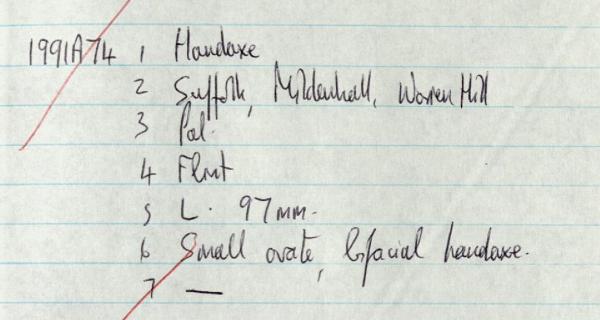 1991A74 1 Handaxe
2 Suffolk, Mildenhall, Warren Hill
3 Pal.
4 Flint
5 L. 97mm.
6 Small ovate, bifacial handaxe.
7 —